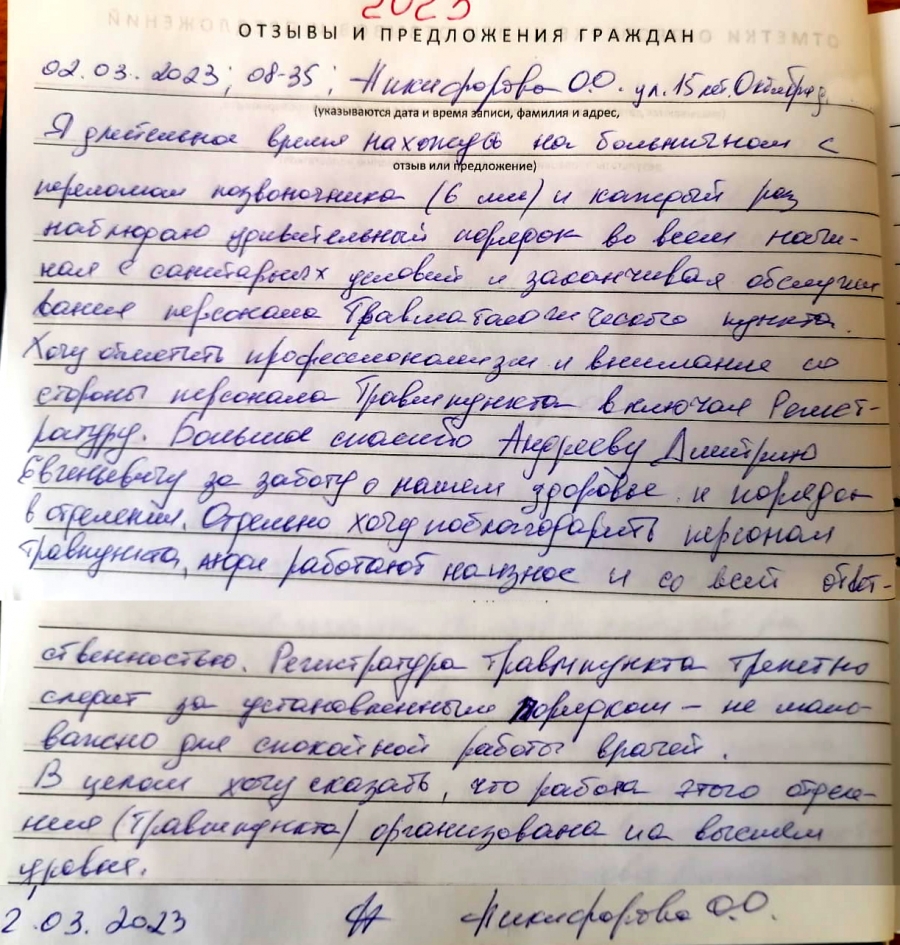 2023
ОТЗЫВЫ И ПРЕДЛОЖЕНИЯ ГРАЖДАН
02.03.2023; 08-35; Никифорова О.О. ул. 15 лет. Октября
(указываются дата и время записи, фамилия и адрес,
Я длительное время нахожусь на больничном с
отзыв или предложение)
переломом позвоночника (6 мес) и каждый раз
наблюдаю удивительный порядок во всем начи-
ная с санитарных условий и заканчивая обслужи
вание персонала Травматологического пункта.
Хочу отметить профессионализм и внимание со
стороны персонала Травмпункта включая Регист-
ратуру. Большое спасибо Андрееву Дмитрию
Евгеньевичу за заботу о нашем здоровье и порядок
в отделении. Отдельно хочу поблагодарить персонал
травпункта, люди работают на износ и со всей ответ-
ственностью. Регистратура травмпункта трепетно
следит за установленным порядком – не мало-
важно для спокойной работы врачей.
В целом хочу сказать, что работа этого отделе-
ния (Травмпункта) организована на высшем
уровне.
2.03.2023 Никифорова О.О.